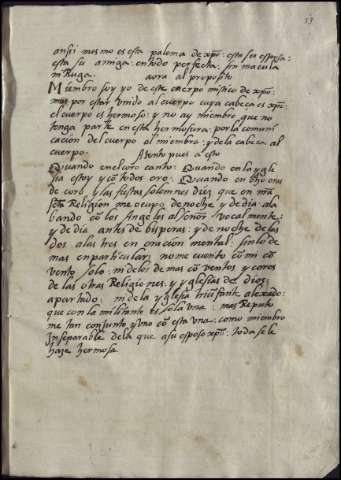 13
ansi mesmo es esta paloma de xpo: esta su esposa:
esta su amiga: en todo perfecta: sin macula
ni Ruga. aora al proposito
Miembro soy yo de este cuerpo mistico de xpo:
mas por estar vnido al cuerpo cuya cabeca es xpo:
el cuerpo es hermoso: y no ay miembro que no
tenga parte en esta hermosura: por la comuni
cación del cuerpo al miembro: y de la cabeca al
cuerpo. Atento pues a esto
Quando en el coro canto: Quando en la ygle
sia estoy y cō todos oro: Quando en oras
de coro y las fiestas solemnes diez que en nra
Religión me ocupo de noche y de dia ala
bando cō los Angeles al señor vocalmente:
y de dia antes de bisperas: y de noche de las
dos a las tres en oracion mental: sin lo de
mas en particular: no me cuento cō mi cō
vento solo: ni de los de mas cō ventos y coros
de las otras Religiones, y yglesias de dios
apartado: ni de la yglesia triunfante alexado:
que con la militante es sola vna: mas Reputo
me tan conjunto y vno cō esta vna: como miembro
Inseparable de la que a su esposo xpo: toda se le
haze hermosa